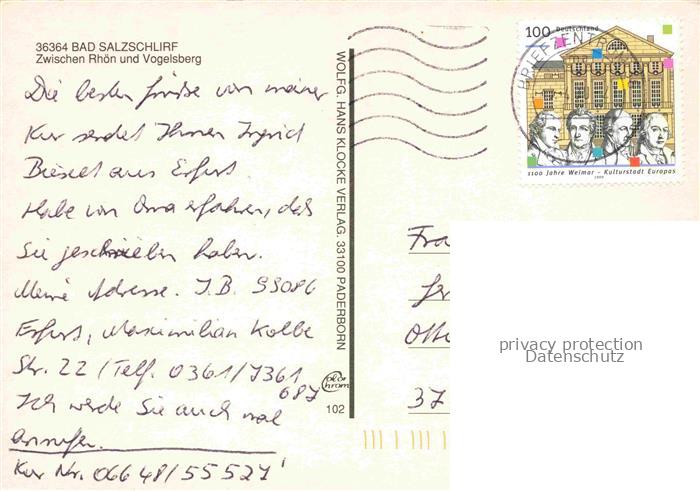 36364 BAD SALZSCHLIRF
Zwischen Rhön und Vogelsberg
Die besten Grüße von meiner
Kur sendet Ihnen Ingrid
aus Erfurt.
Habe von Oma erfahren, daß
Sie geschrieben haben.
Meine Adresse. I.B. 99086
Erfurt, Maximilian Kolbe
Str. 22 / Telf. 0361/7361
687
Ich werde Sie auch mal
anrufen.
Kur Nr. 06648/55527
WOLFG. HANS KLOCKE VERLAG, 33100 PADERBORN
102
100 Deutschland
BRIEFZENTR
1100 Jahre Weimar - Kulturstadt Europas
1999
Fra
Otto
37
privacy protection
Datenschutz